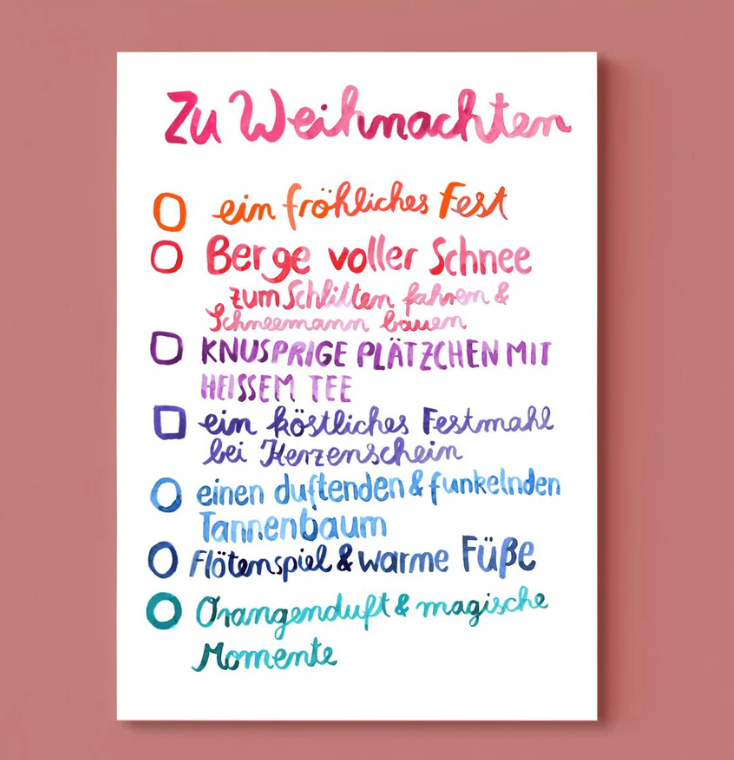 Zu Weihnachten
ein fröhliches Fest
Berge voller Schnee
zum Schlitten fahren &
Schneemann bauen
KNUSPRIGE PLÄTZCHEN MIT
HEISSEM TEE
ein köstliches Festmahl
bei Herzenschein
einen duftenden & funkelnden
Tannenbaum
Flötenspiel & warme Füße
Orangenduft & magische
Momente